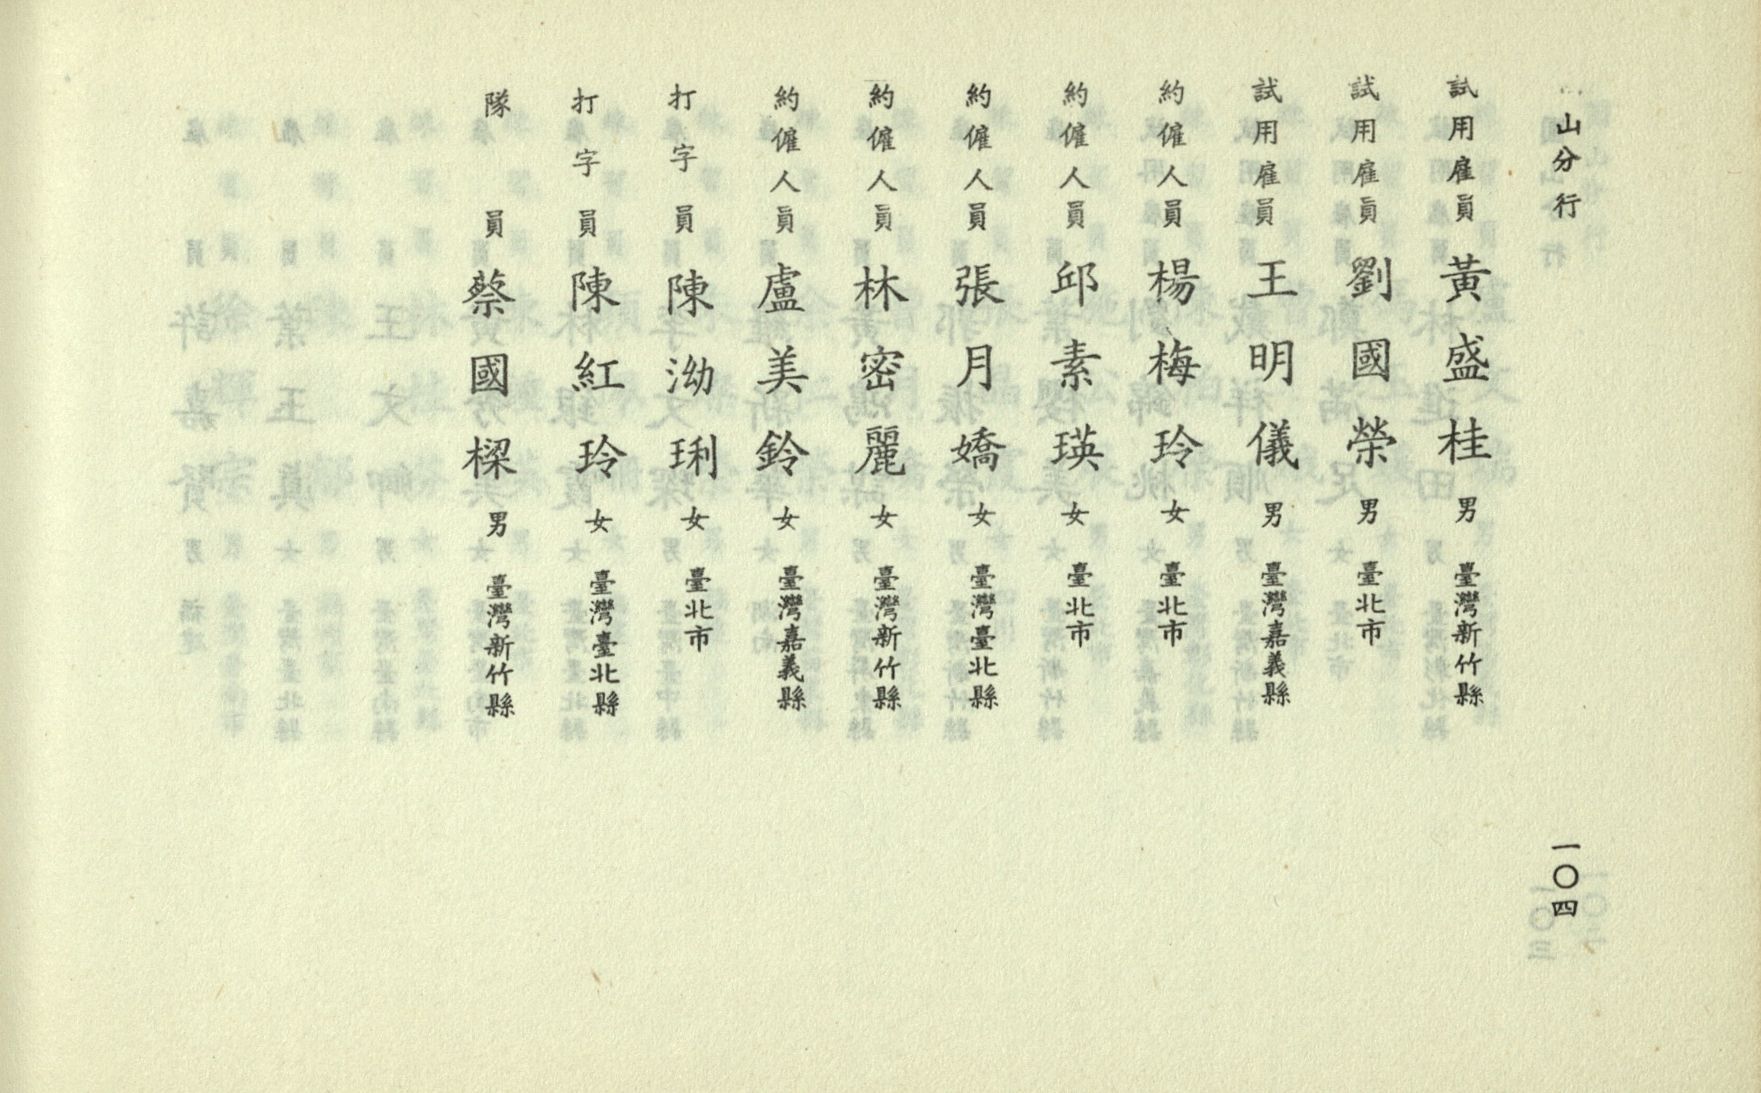 山分行
一〇四
試用雇員 黃盛桂 男 臺灣新竹縣
試用雇員 劉國榮 男 臺北市
試用雇員 王明儀 男 臺灣嘉義縣
約僱人員 楊梅玲 女 臺北市
約僱人員 邱素瑛 女 臺北市
約僱人員 張月嬌 女 臺灣臺北縣
約僱人員 林密麗 女 臺灣新竹縣
約僱人員 盧美鈴 女 臺灣嘉義縣
打字員 陳泑琍 女 臺北市
打字員 陳紅玲 女 臺灣臺北縣
隊員 蔡國樑 男 臺灣新竹縣